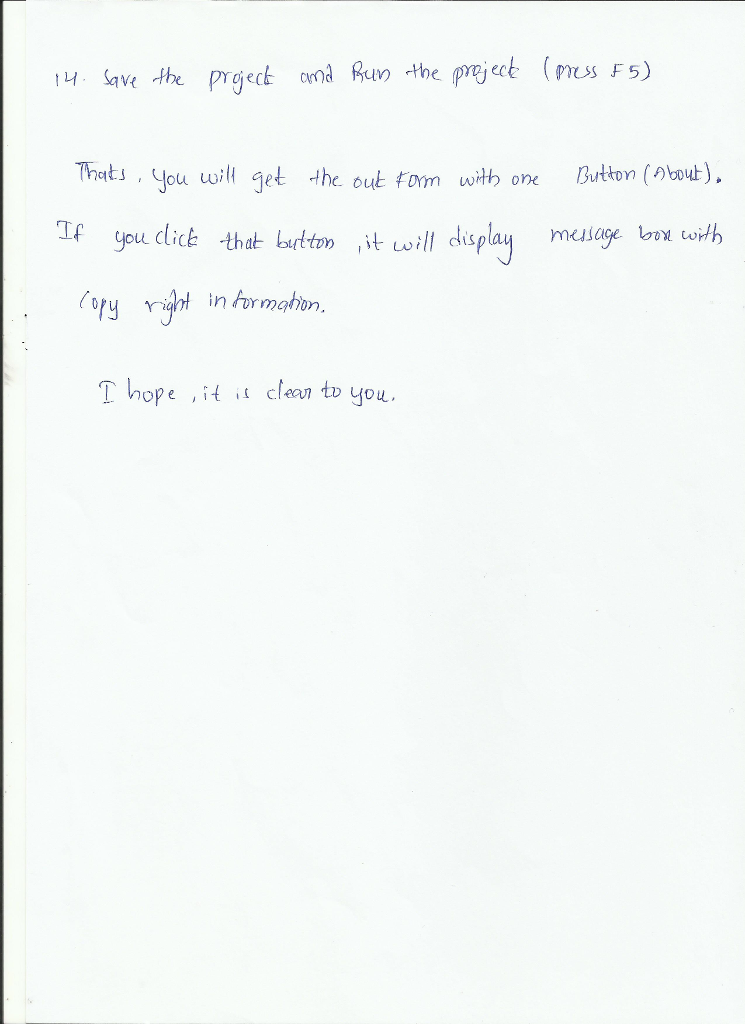 14. Save the project and Run the project (press F5)
Thats, you will get the out form with one Button (About).
If you click that button, it will display message box with
Copy right information.
I hope, it is clear to you.